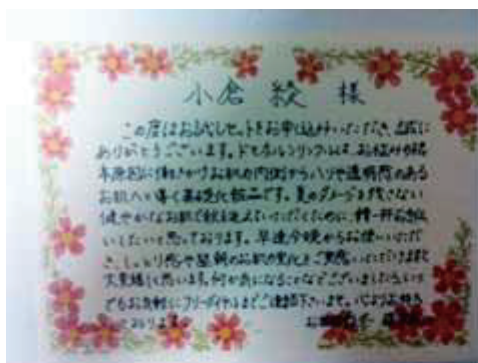 小倉 絞 様
この度はお試しセットをお申し込みいただき、誠に
ありがとうございます。ドモホルンリンクルは、お悩みの根
本原因に働きかけお肌の内側からハリや透明感のある
お肌へと導く基礎化粧品です。夏のダメージを残さない
健やかなお肌で秋を迎えていただくために、精一杯お手伝
いしたいと思っております。早速今晩からお使いいただ
き、しっとり感や翌朝のお肌の変化をご実感いただければ
大変嬉しく思います。何か気になることなどございましたら、いつ
でもお気軽にフリーダイヤルまでご連絡下さいませ。心よりお待ち
しております。